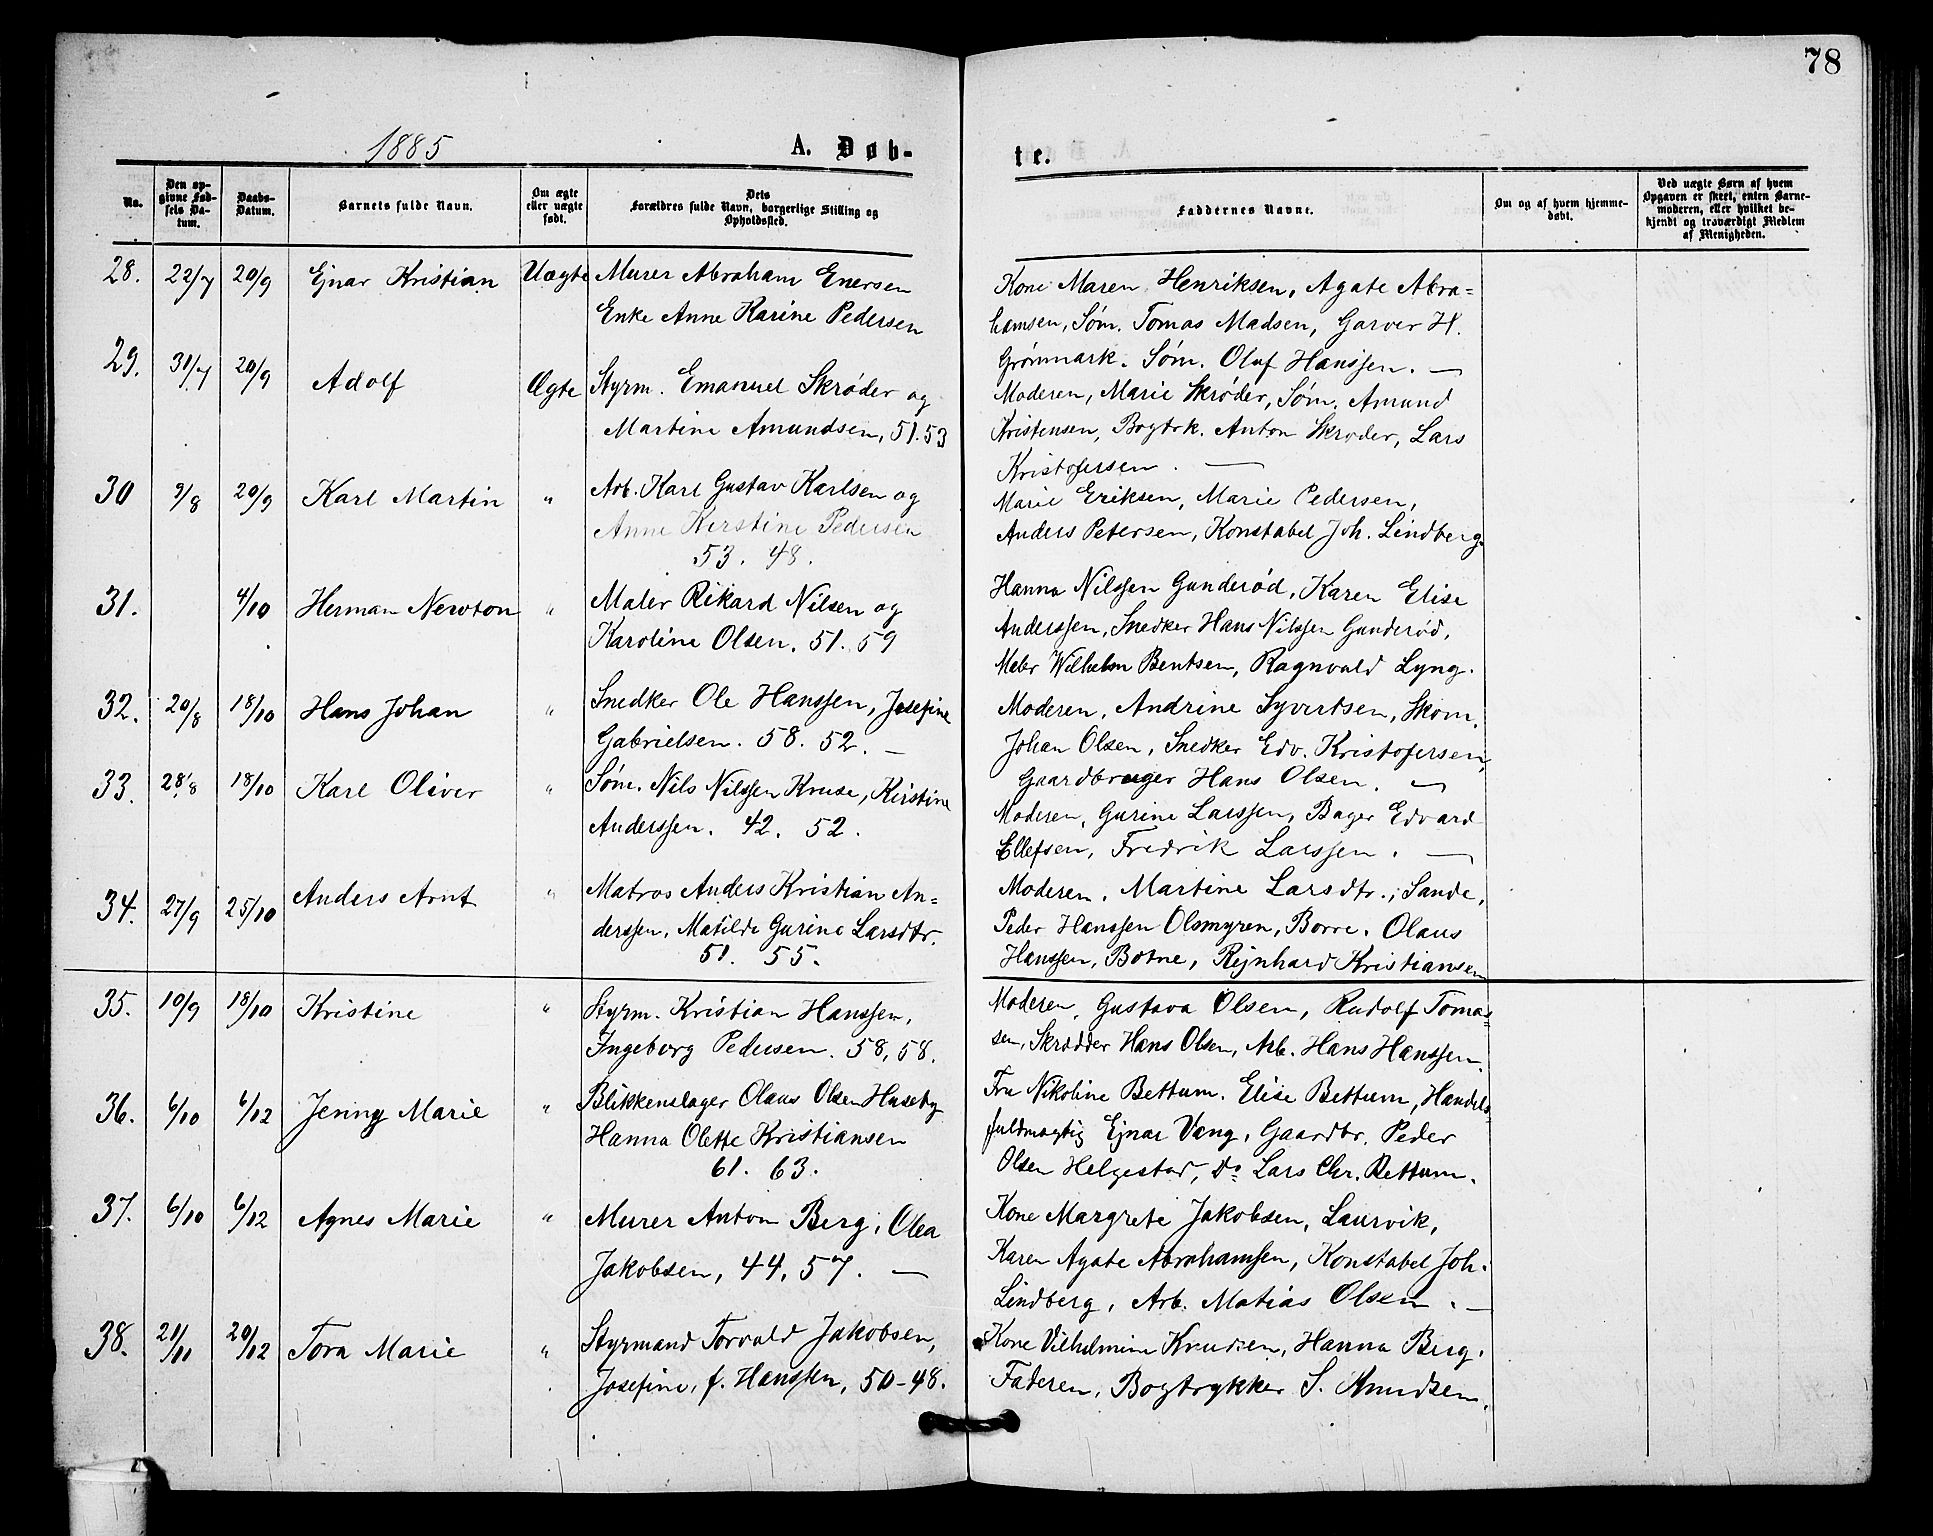 78
1885
A. Døb-
te.
No.
Den op-
givne Fød-
sels Da-
tum.
Daabs-
Datum.
Barnets fulde Navn.
Om ægte
eller uægte
født.
Dets
Forældres fulde Navn, borgerlige Stilling og
Opholdssted.
Faddernes Navne.
Om og af hvem hjemme-
døbt.
Ved uægte Børn af hvem
Opgaven er skeet, enten Barne-
moderen, eller hvilket be-
kjendt og troværdigt Medlem
af Menigheden.
28. 22/7 20/9 Ejnar Kristian Uægte Murer Abraham Enersen
Enke Anne Karine Pedersen
Kone Maren Henriksen, Agate Abra=
hamsen, Søm. Tomas Madsen, Garver H.
Grønmark. Søm. Oluf Hanssen. —
29. 31/7 20/9 Adolf Ægte Styrm. Emanuel Skrøder og
Martine Amundsen, 51.53
Moderen, Marie Skrøder, Søm. Amund
Kristensen, Bogtrk. Anton Skrøder, Lars
Kristofersen. —
30 9/8 20/9 Karl Martin " Arb. Karl Gustav Karlsen og
Anne Kerstine Pedersen
53. 48.
Marie Eriksen, Marie Pedersen,
Anders Petersen, Konstabel Joh. Lindberg.
31. 4/10 Herman Newton " Maler Rikard Nilsen og
Karoline Olsen. 51. 59
Hanna Nilssen Gunderød, Karen Elise
Anderssen, Snedker Hans Nilssen Gunderød,
Maler Wilhelm Bentsen, Ragnvald Lyng.
32. 20/8 18/10 Hans Johan " Snedker Ole Hanssen, Josefine
Gabrielsen. 58. 52. —
Moderen, Andrine Syvertsen, Skom.
Johan Olsen, Snedker Edv. Kristofersen,
Gaardbruger Hans Olsen. —
33. 28/8 18/10 Karl Oliver " Søm. Nils Nilssen Kruse, Kirstine
Anderssen. 42. 52.
Moderen, Gurine Larssen, Bager Edvard
Ellefsen, Fredrik Larssen. —
34. 27/9 25/10 Anders Arnt " Matros Anders Kristian An=
derssen, Matilde Gurine Larsdtr.
51. 55.
Moderen, Martine Larsdtr., Sande,
Peder Hanssen Olsmyren, Borre. Olaus
Hanssen, Botne, Rejnhard Kristiansen
35. 10/9 18/10 Kristine " Styrm. Kristian Hanssen,
Ingeborg Pedersen. 58, 58.
Moderen, Gustava Olsen, Rudolf Tomas=
sen, Skrædder Hans Olsen, Arb. Hans Hanssen.
36. 6/10 6/12 Jenny Marie " Blikkenslager Olaus Olsen Huseby
Hanna Olette Kristiansen
61. 63.
Fru Nikoline Bettum. Elise Bettum, Handels
fuldmægtig Ejnar Vang, Gaardbr. Peder
Olsen Helgestad, Do Lars Chr. Bettum.
37. 6/10 6/12 Agnes Marie " Murer Anton Berg, Olea
Jakobsen, 44, 57. —
Kone Margrete Jakobsen, Laurvik,
Karen Agate Abrahamsen, Konstabel Joh.
Lindberg, Arb. Matias Olsen. —
38. 21/11 20/12 Tora Marie " Styrmand Torvald Jakobsen,
Josefine, f. Hanssen, 50-48.
Kone Vilhelmine Knudsen, Hanna Berg.
Faderen, Bogtrykker S. Knudsen.